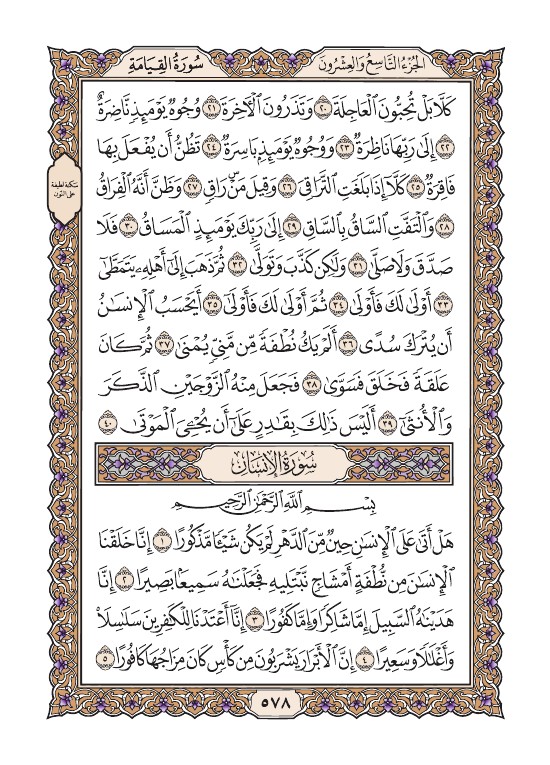 الجُزْءُ التَّاسِعُ وَالعِشْرُونَ
سُورَةُ القِيَامَةِ
كَلَّا بَلْ تُحِبُّونَ ٱلۡعَاجِلَةَ ٢٠ وَتَذَرُونَ ٱلۡأٓخِرَةَ ٢١ وُجُوهٞ يَوۡمَئِذٖ نَّاضِرَةٌ
٢٢ إِلَىٰ رَبِّهَا نَاظِرَةٞ ٢٣ وَوُجُوهٞ يَوۡمَئِذِۭ بَاسِرَةٞ ٢٤ تَظُنُّ أَن يُفۡعَلَ بِهَا
فَاقِرَةٞ ٢٥ كَلَّآ إِذَا بَلَغَتِ ٱلتَّرَاقِيَ ٢٦ وَقِيلَ مَنۡۜ رَاقٖ ٢٧ وَظَنَّ أَنَّهُ ٱلۡفِرَاقُ
٢٨ وَٱلۡتَفَّتِ ٱلسَّاقُ بِٱلسَّاقِ ٢٩ إِلَىٰ رَبِّكَ يَوۡمَئِذٍ ٱلۡمَسَاقُ ٣٠ فَلَا
صَدَّقَ وَلَا صَلَّىٰ ٣١ وَلَٰكِن كَذَّبَ وَتَوَلَّىٰ ٣٢ ثُمَّ ذَهَبَ إِلَىٰٓ أَهۡلِهِۦ يَتَمَطَّىٰٓ
٣٣ أَوۡلَىٰ لَكَ فَأَوۡلَىٰ ٣٤ ثُمَّ أَوۡلَىٰ لَكَ فَأَوۡلَىٰٓ ٣٥ أَيَحۡسَبُ ٱلۡإِنسَٰنُ
أَن يُتۡرَكَ سُدًى ٣٦ أَلَمۡ يَكُ نُطۡفَةٗ مِّن مَّنِيّٖ يُمۡنَىٰ ٣٧ ثُمَّ كَانَ
عَلَقَةٗ فَخَلَقَ فَسَوَّىٰ ٣٨ فَجَعَلَ مِنۡهُ ٱلزَّوۡجَيۡنِ ٱلذَّكَرَ
وَٱلۡأُنثَىٰٓ ٣٩ أَلَيۡسَ ذَٰلِكَ بِقَٰدِرٍ عَلَىٰٓ أَن يُحۡـِۧيَ ٱلۡمَوۡتَىٰ ٤٠
سُورَةُ الإِنسَانِ
بِسۡمِ ٱللَّهِ ٱلرَّحۡمَٰنِ ٱلرَّحِيمِ
هَلۡ أَتَىٰ عَلَى ٱلۡإِنسَٰنِ حِينٞ مِّنَ ٱلدَّهۡرِ لَمۡ يَكُن شَيۡـٔٗا مَّذۡكُورًا ١ إِنَّا خَلَقۡنَا
ٱلۡإِنسَٰنَ مِن نُّطۡفَةٍ أَمۡشَاجٖ نَّبۡتَلِيهِ فَجَعَلۡنَٰهُ سَمِيعَۢا بَصِيرًا ٢ إِنَّا
هَدَيۡنَٰهُ ٱلسَّبِيلَ إِمَّا شَاكِرٗا وَإِمَّا كَفُورًا ٣ إِنَّآ أَعۡتَدۡنَا لِلۡكَٰفِرِينَ سَلَٰسِلَاْ
وَأَغۡلَٰلٗا وَسَعِيرًا ٤ إِنَّ ٱلۡأَبۡرَارَ يَشۡرَبُونَ مِن كَأۡسٖ كَانَ مِزَاجُهَا كَافُورًا ٥
سكتة لطيفة
على النون
٥٧٨